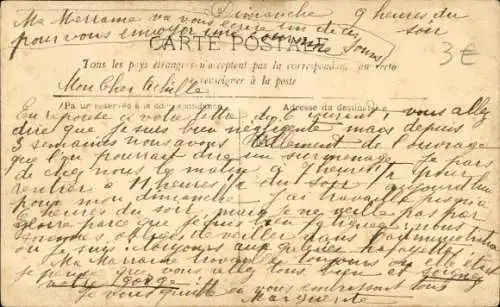 Dimanche 9 heures du soir
Ma Marraine va vous écrire un de ces jours
pour vous envoyer une
CARTE POSTALE
3€
Tous les pays étrangers n'acceptent pas la correspondance au recto
(se renseigner à la poste
Mon Cher Achille
Partie réservée à la correspondance
Adresse du destinataire
En réponse à votre lettre du 6 courant, vous allez
dire que je suis bien négligente mais depuis
3 semaines nous avons tellement de l'ouvrage
que l'on pourrait dire un surmenage. Je pars
de chez nous le matin à 7 heures pour
rentrer à 11 heures du soir aujourd'hui
pour mon dimanche j'ai travaillé jusqu'à
heures du soir, mais je ne veille pas par
gloire parce que je suis
obligés de veiller dans l'administration
ou je suis toujours aux
Ma Marraine travaille toujours
je pense que vous allez tous bien et soignez
votre gorge
Je vous quitte en vous embrassant tous
Marguerite